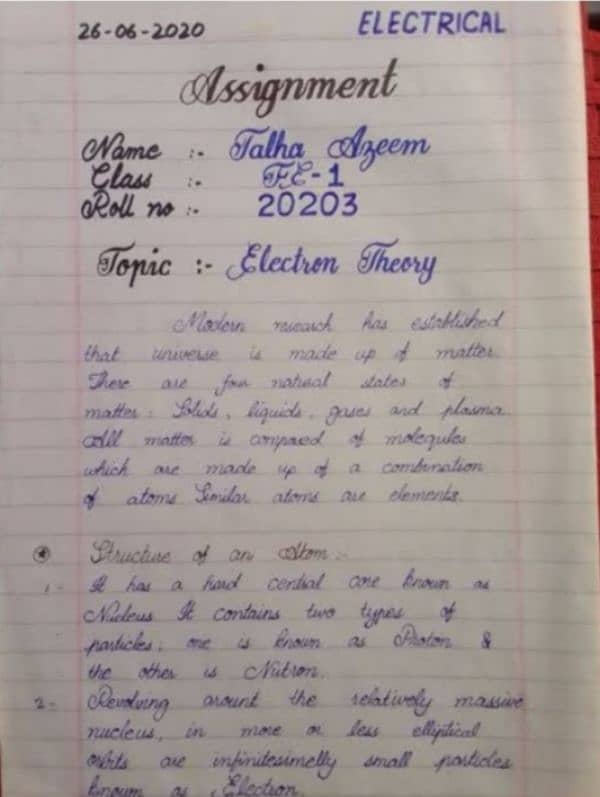 26-06-2020
ELECTRICAL
Assignment
Name :- Talha Azeem
Class :- FE-1
Roll no :- 20203
Topic :- Electron Theory
Modern research has established
that universe is made up of matter.
There are four natural states of
matter: Solids, liquids, gases and plasma.
All matter is composed of molequles
which are made up of a combination
of atoms Similar atoms are elements.
Structure of an Atom :-
1- It has a hard central core known as
Nucleus It contains two types of
particles; one is known as Proton &
the other is Nutron.
2- Revolving arount the relatively massive
nucleus, in more or less elliptical
orbits are infinitesimelly small particles
known as Electron.